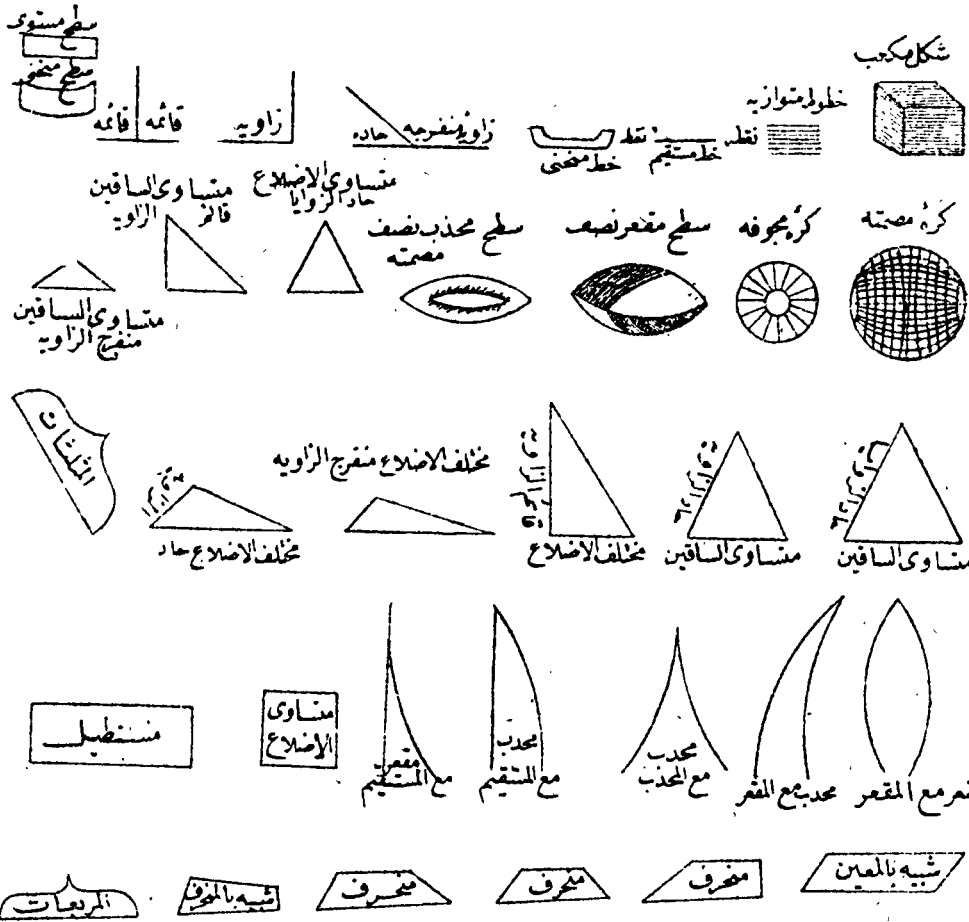 شكل مكعب
خطوط متوازيه
نقطه
خط مستقيم
نقط
خط منحنى
زاوية منفرجه
حاده
زاويه
قائمه
قائمه
سطح مستوى
سطح منحنى
كرة مصمته
كرة مجوفه
سطح مقعر نصف
سطح محذب نصف
مصمته
متساوى الاضلاع
حاد الزوايا
متساوى الساقين
الزاويه
متساوى الساقين
منفرج الزاويه
متساوى الساقين
حاد الزاوية
متساوى الساقين
قائم الزاوية
مختلف الاضلاع
مختلف الاضلاع منفرج الزاويه
مختلف الاضلاع حاد
المثلثات
مع المقعر
محدب مع المقعر
محدب
مع المحذب
محدب
مع المستقيم
مقعر
مع المستقيم
متساوى
الاضلاع
مستطيل
شبيه بالمعين
منحرف
منحرف
منحرف
شبيه بالمنحرف
المربعات